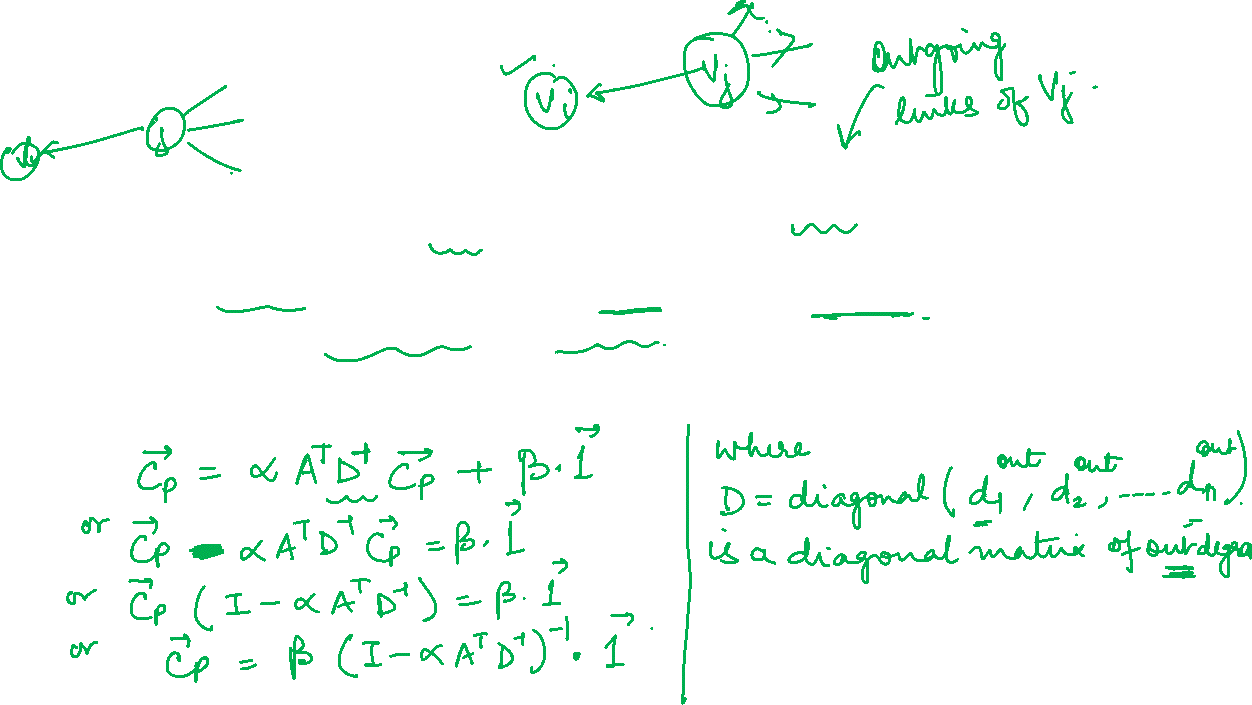 Vi
Vj
Outgoing
links of Vj.
C⃗p = α Aᵀ D⁻¹ C⃗p + β. 1⃗
or C⃗p - α Aᵀ D⁻¹ C⃗p = β. 1⃗
or C⃗p (I - α Aᵀ D⁻¹) = β. 1⃗
or C⃗p = β (I - α Aᵀ D⁻¹)⁻¹ . 1⃗.
where
D = diagonal (d₁ᵒᵘᵗ, d₂ᵒᵘᵗ, ..... dₙᵒᵘᵗ)
is a diagonal matrix of outdegre